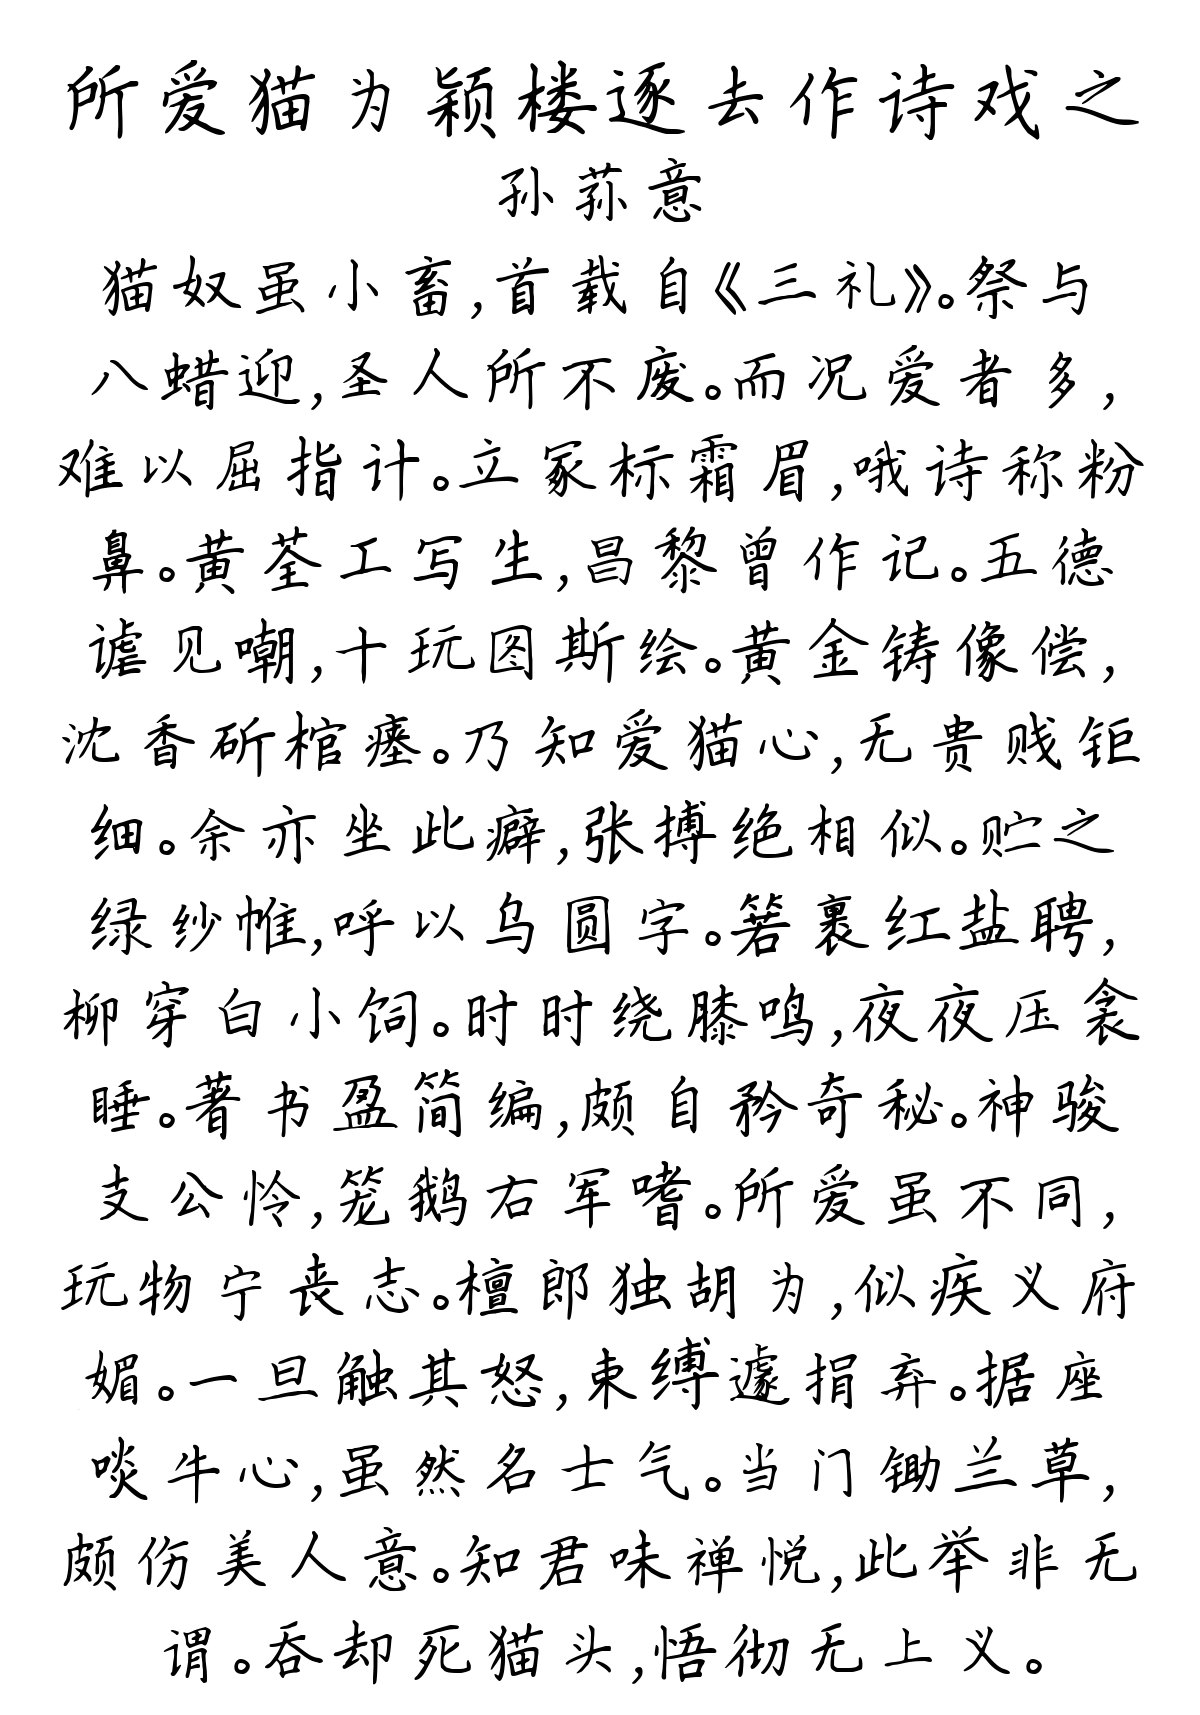 所爱猫为颖楼逐去作诗戏之
孙荪意
猫奴虽小畜,首载自《三礼》。祭与
八蜡迎,圣人所不废。而况爱者多,
难以屈指计。立冢标霜眉,哦诗称粉
鼻。黄荃工写生,昌黎曾作记。五德
谑见嘲,十玩图斯绘。黄金铸像偿,
沈香斫棺瘗。乃知爱猫心,无贵贱钜
细。余亦坐此癖,张搏绝相似。贮之
绿纱帷,呼以乌圆字。箬裹红盐聘,
柳穿白小饲。时时绕膝鸣,夜夜压衾
睡。著书盈简编,颇自矜奇秘。神骏
支公怜,笼鹅右军嗜。所爱虽不同,
玩物宁丧志。檀郎独胡为,似疾义府
媚。一旦触其怒,束缚遽捐弃。据座
啖牛心,虽然名士气。当门锄兰草,
颇伤美人意。知君味禅悦,此举非无
谓。吞却死猫头,悟彻无上义。